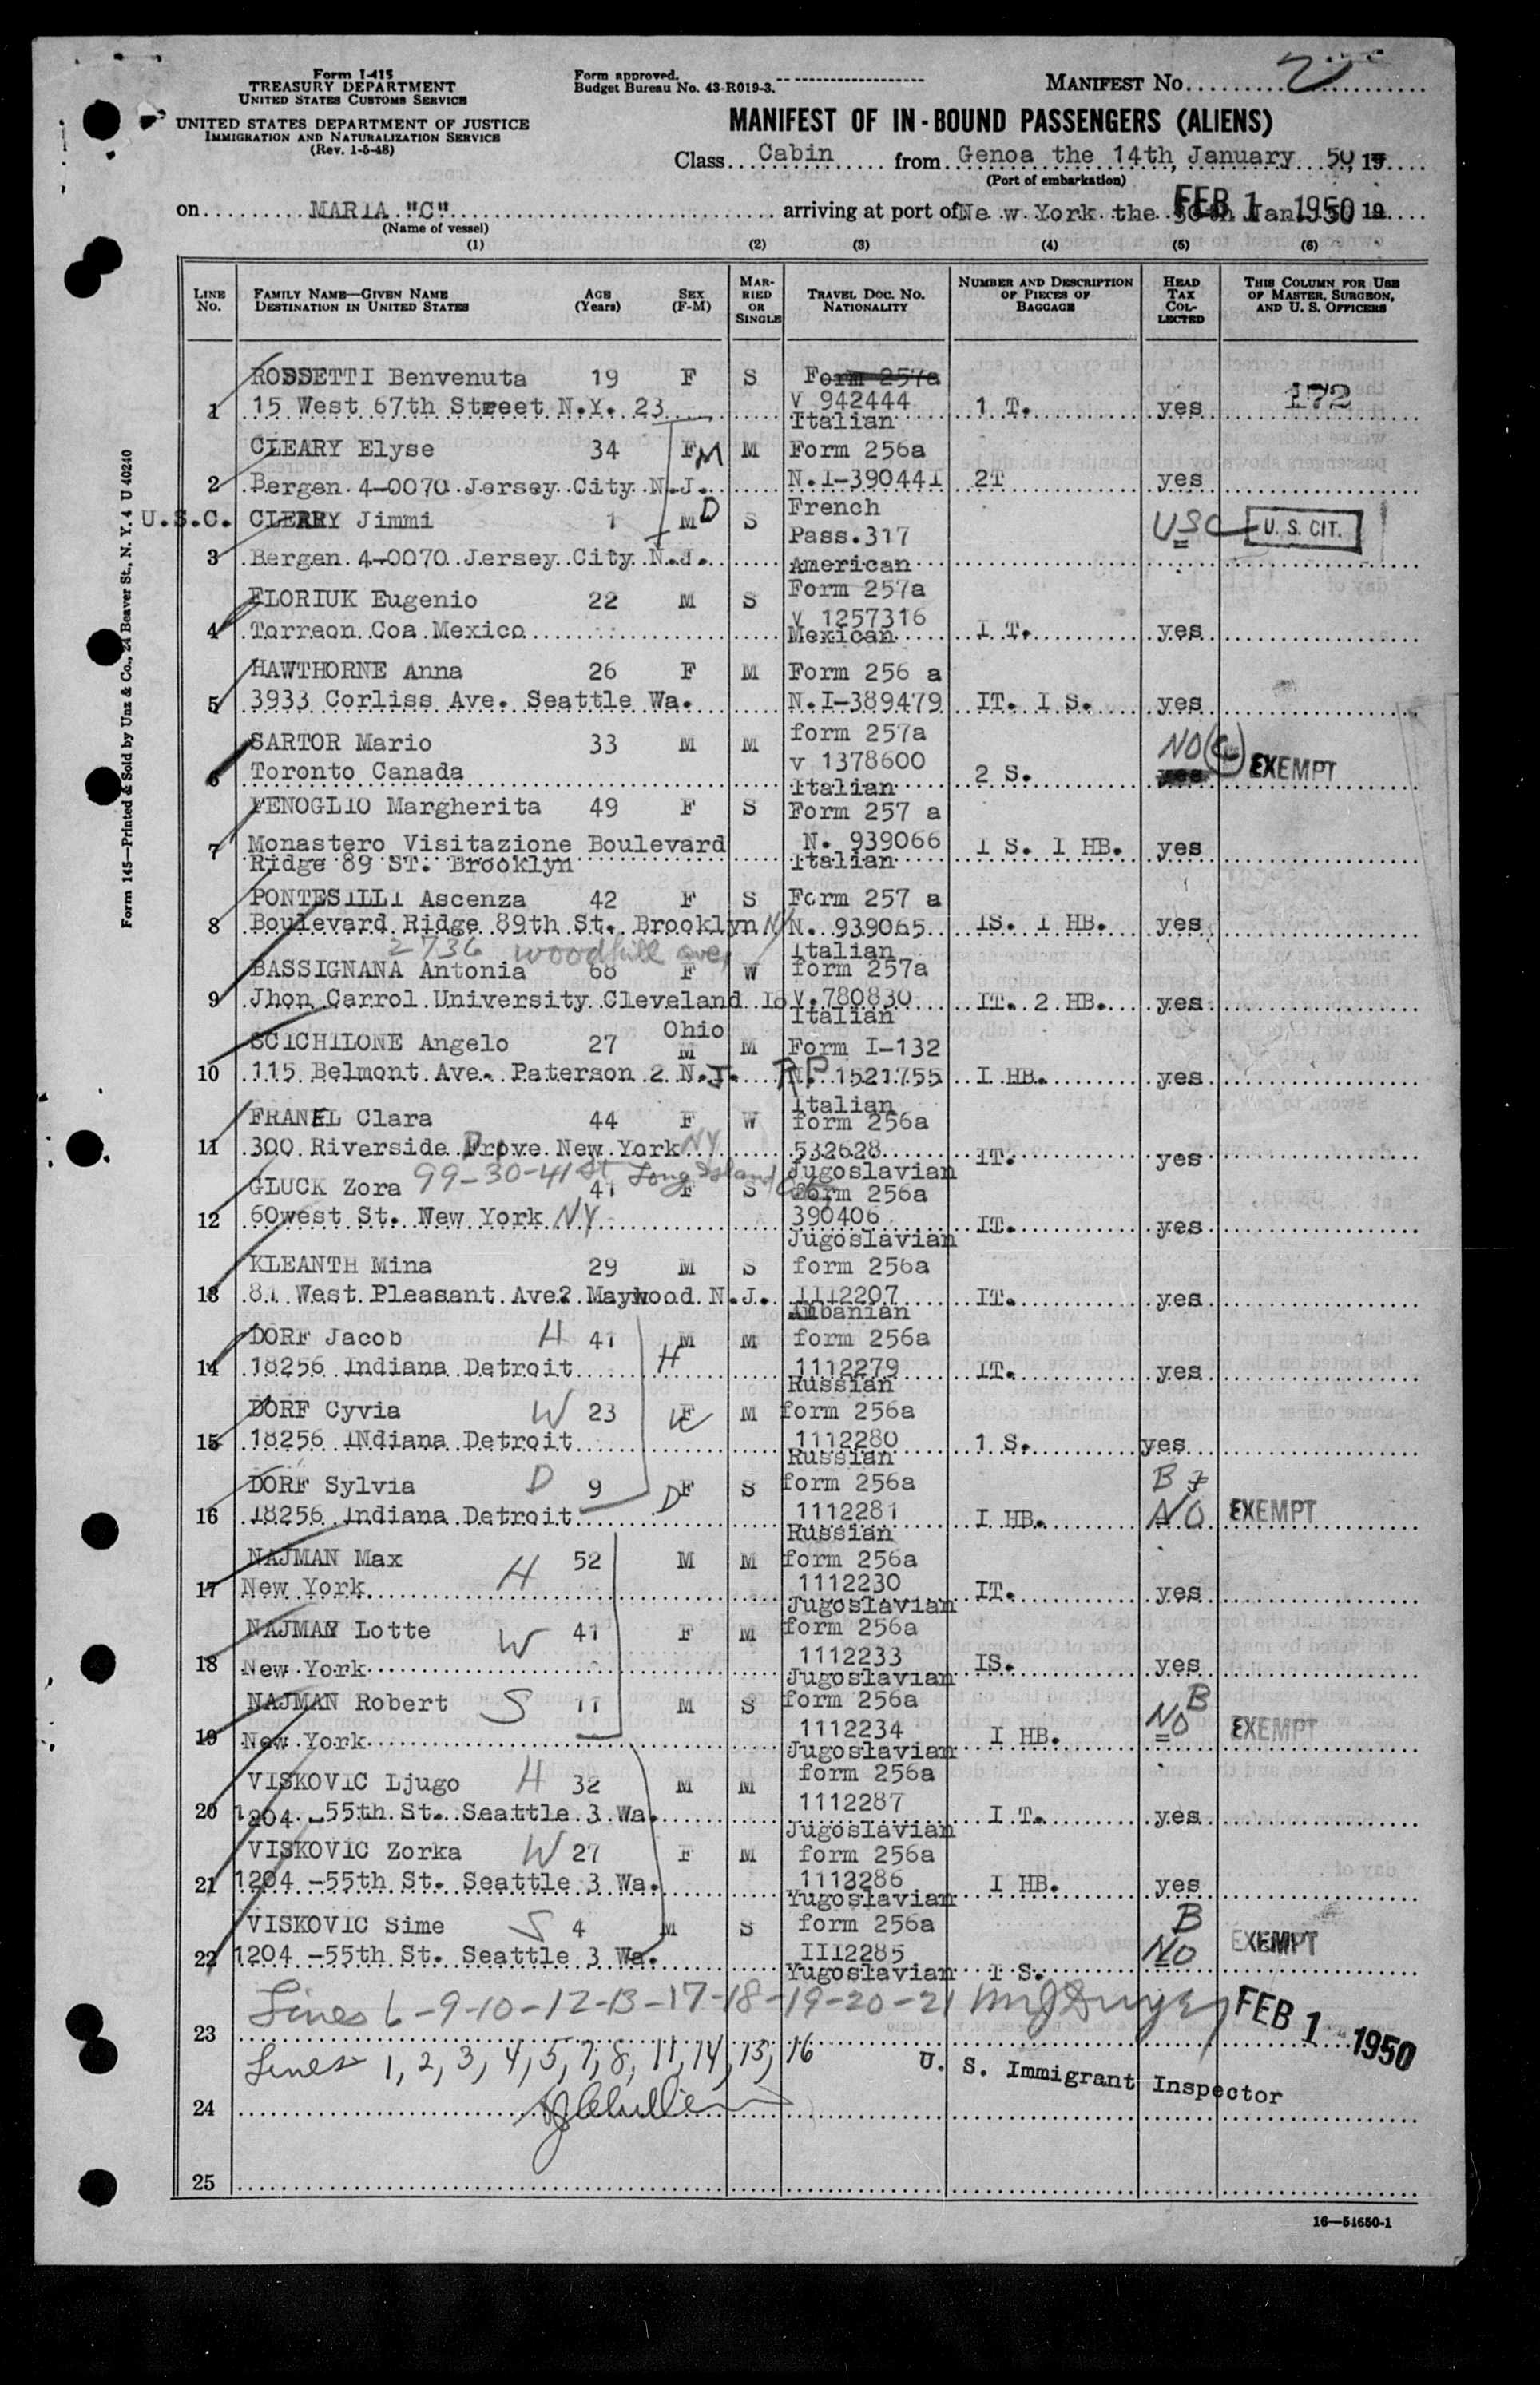 Form I-415
TREASURY DEPARTMENT
UNITED STATES CUSTOMS SERVICE
UNITED STATES DEPARTMENT OF JUSTICE
IMMIGRATION AND NATURALIZATION SERVICE
(Rev. 1-5-48)
Form approved.
Budget Bureau No. 43-R019-3.
MANIFEST No. 2
MANIFEST OF IN-BOUND PASSENGERS (ALIENS)
Class Cabin from Genoa the 14th January 50, 19
(Port of embarkation)
on MARIA "C" arriving at port of Ne w York the 30th Jan. FEB 1 1950 19
(Name of vessel)
(1) (2) (3) (4) (5) (6)
LINE No. FAMILY NAME—GIVEN NAME DESTINATION IN UNITED STATES AGE (Years) SEX (F-M) MARRIED OR SINGLE TRAVEL DOC. NO. NATIONALITY NUMBER AND DESCRIPTION OF PIECES OF BAGGAGE HEAD TAX COLLECTED THIS COLUMN FOR USE OF MASTER, SURGEON, AND U. S. OFFICERS
ROSSETTI Benvenuta 19 F S Form 257a 172
1 15 West 67th Street N.Y. 23 V 942444 1 T. yes
Italian
CLEARY Elyse 34 F M M Form 256a
2 Bergen 4-0070 Jersey City N.J. N.I-390441 2T yes
French
U.S.C. CLEARY Jimmi 1 M D S Pass.317 USC U. S. CIT.
3 Bergen 4-0070 Jersey City N.J. American
FLORIUK Eugenio 22 M S Form 257a
v 1257316
4 Torreon Coa Mexico Mexican I T. yes
HAWTHORNE Anna 26 F M Form 256 a
5 3933 Corliss Ave. Seattle Wa. N.I-389479 IT. I S. yes
SARTOR Mario 33 M M form 257a NO EXEMPT
6 Toronto Canada v 1378600 2 S. yes
Italian
FENOGLIO Margherita 49 F S Form 257 a
7 Monastero Visitazione Boulevard N. 939066 I S. I HB. yes
Ridge 89 ST. Brooklyn Italian
PONTESILLI Ascenza 42 F S Form 257 a
8 Boulevard Ridge 89th St. Brooklyn NY N. 939065 IS. I HB. yes
2736 woodhill ave, Italian
BASSIGNANA Antonia 68 F W form 257a
9 Jhon Carrol University Cleveland Io V.780830 IT. 2 HB. yes
Ohio Italian
SCICHILONE Angelo 27 M M Form I-132
10 115 Belmont Ave. Paterson 2 N.J. RP N. 1521755 I HB. yes
Italian
FRANEL Clara 44 F W form 256a
11 300 Riverside Drove New York NY 532628 IT. yes
99-30-41 St Long Island City Jugoslavian
GLUCK Zora 41 F S form 256a
12 60west St. New York NY 390406 IT. yes
Jugoslavian
KLEANTH Mina 29 M S form 256a
13 81 West Pleasant Ave2 Maywood N.J. 1112207 IT. yes
Albanian
DORF Jacob H 41 M M form 256a
14 18256 Indiana Detroit H 1112279 IT. yes
Russian
DORF Cyvia W 23 F W M form 256a
15 18256 INdiana Detroit 1112280 1 S. yes
Russian
DORF Sylvia D 9 F D S form 256a B 7
16 18256 Indiana Detroit 1112281 I HB. NO EXEMPT
Russian
NAJMAN Max H 52 M M form 256a
17 New York 1112230 IT. yes
Jugoslavian
NAJMAN Lotte W 41 F M form 256a
18 New York 1112233 IS. yes
Jugoslavian
NAJMAN Robert S 11 M S form 256a B
19 New York 1112234 I HB. NO EXEMPT
Jugoslavian
VISKOVIC Ljugo H 32 M M form 256a
20 1204 -55th St. Seattle 3 Wa. 1112287 I T. yes
Jugoslavian
VISKOVIC Zorka W 27 F M form 256a
21 1204 -55th St. Seattle 3 Wa. 1112286 I HB. yes
Yugoslavian
VISKOVIC Sime S 4 M S form 256a B
22 1204 -55th St. Seattle 3 Wa. III2285 NO EXEMPT
Yugoslavian I S.
Lines 6-9-10-12-13-17-18-19-20-21 FEB 1 1950
23
Lines 1, 2, 3, 4, 5, 7, 8, 11, 14, 15, 16
U. S. Immigrant Inspector
24
25
16—54650-1
Form 145—Printed & Sold by Unz & Co., 24 Beaver St., N. Y. 4 U 40240